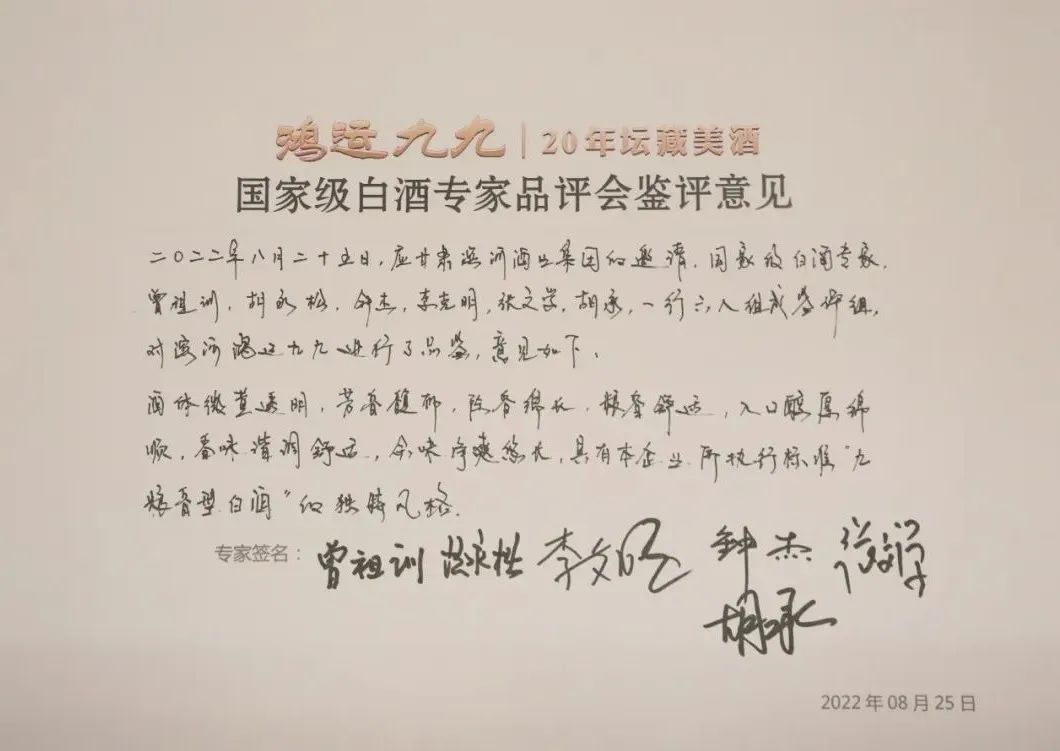 鸿运九九 | 20年坛藏美酒
国家级白酒专家品评会鉴评意见
二〇二二年八月二十五日,应甘肃滨河酒业集团的邀请,国家级白酒专家,
曾祖训,胡永松,钟杰,李克明,张文学,胡承,一行六人组成鉴评组,
对滨河鸿运九九进行了品鉴,意见如下。
酒体微黄透明,芳香馥郁,陈香绵长,粮香舒适,入口醇厚绵
顺,香味谐调舒适,余味净爽悠长,具有本企业所执行标准“九
粮香型白酒”的独特风格.
专家签名: 曾祖训 胡永松 李克明 钟杰 张文学
胡承
2022年08月25日